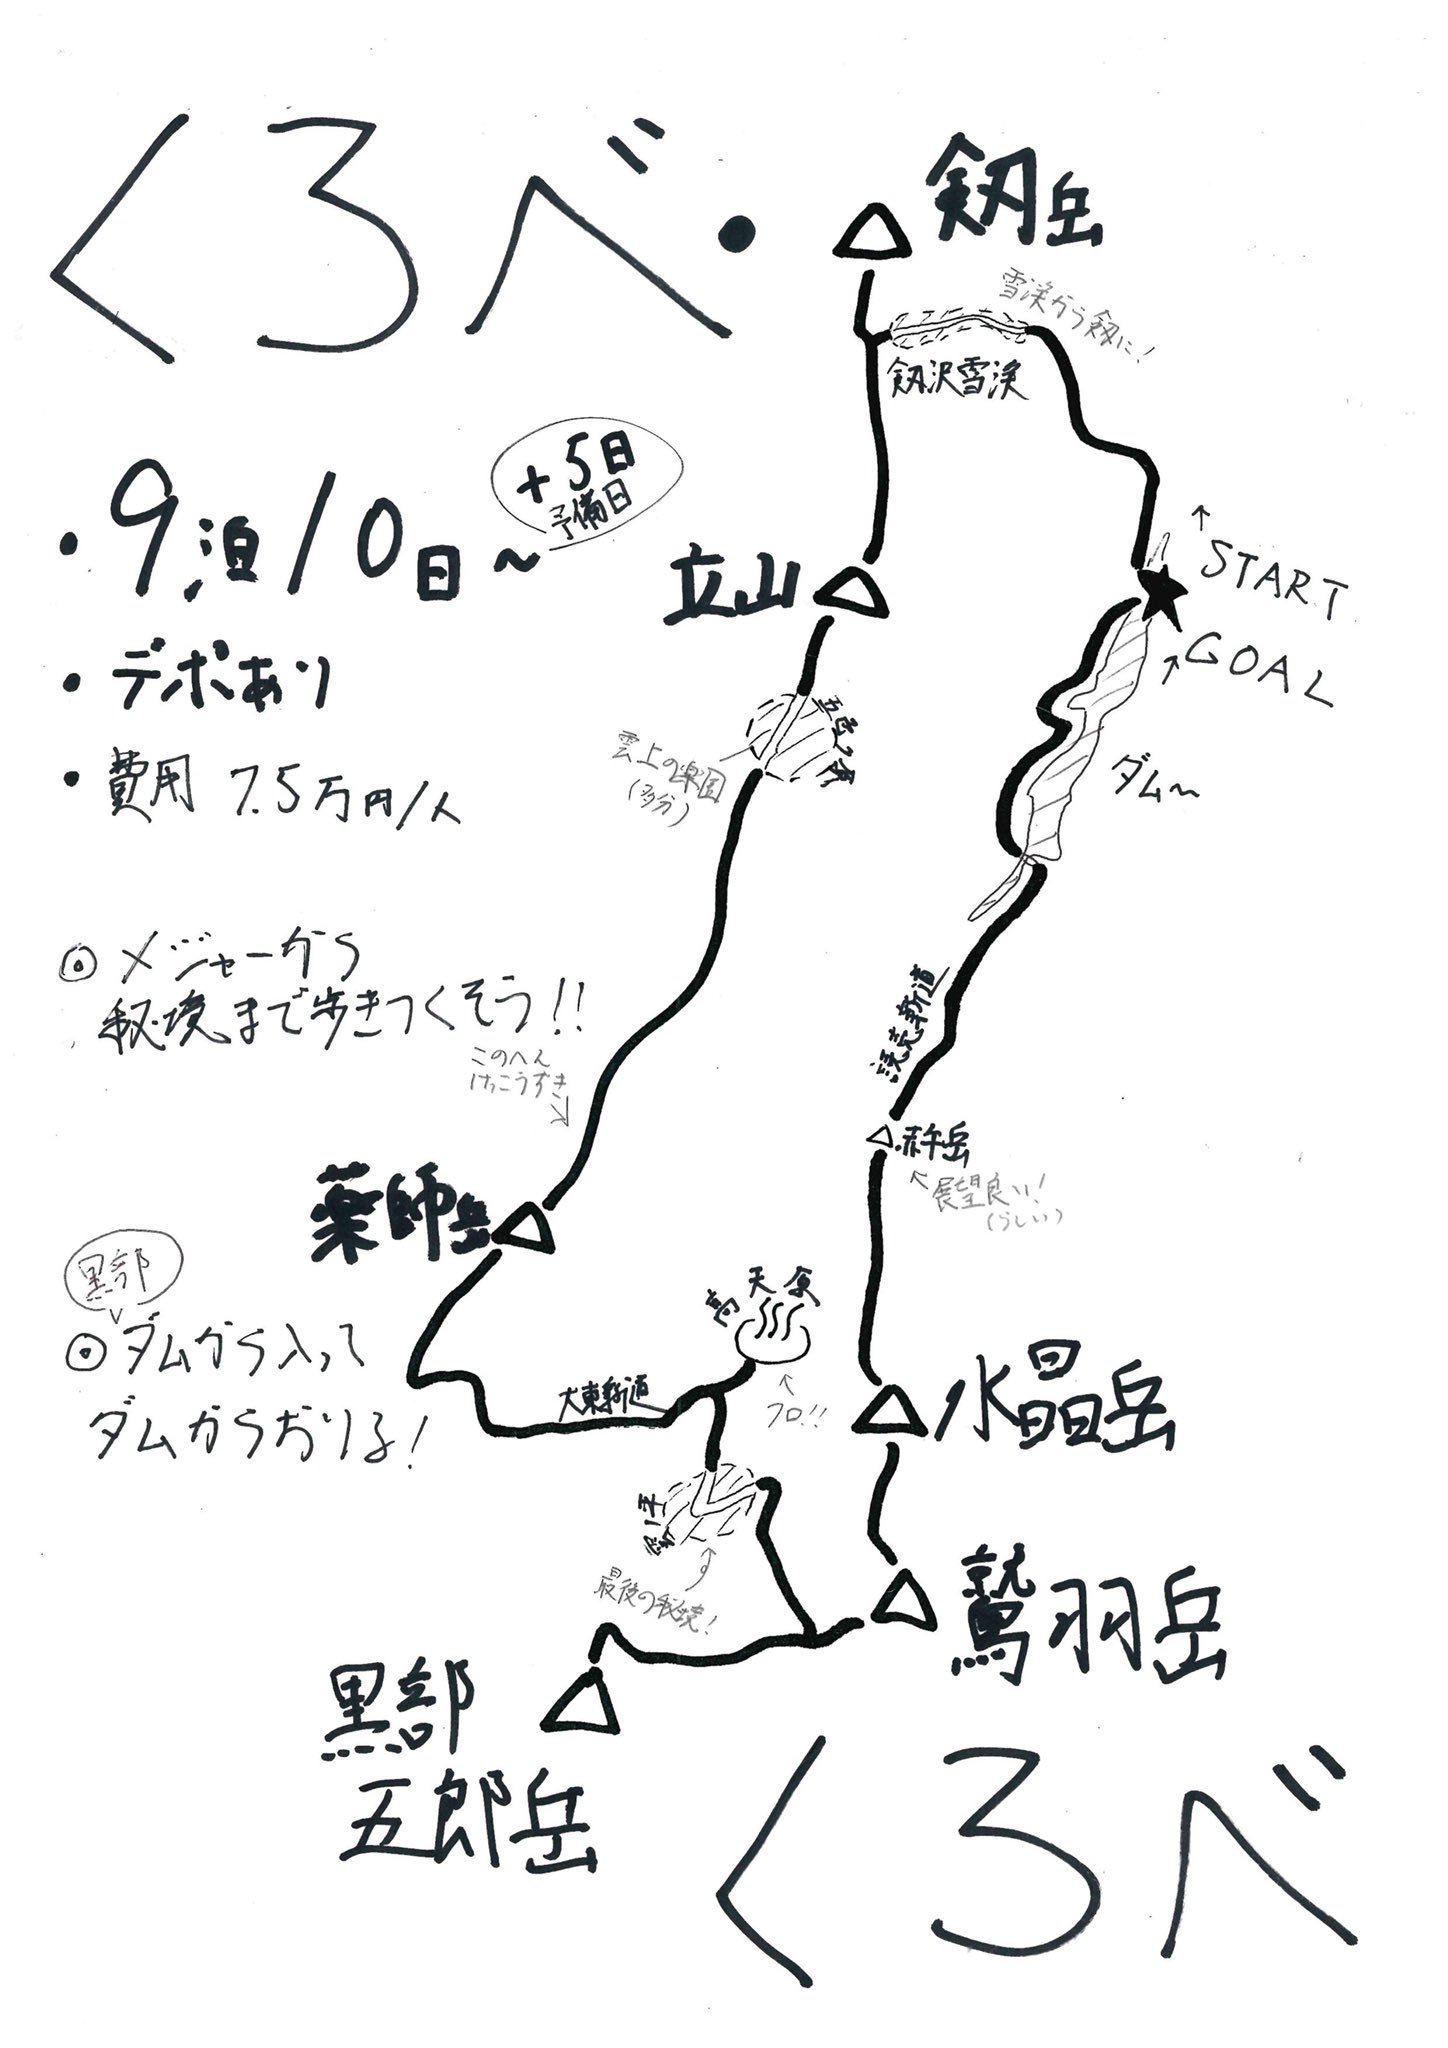 くろべ・
剱岳
雪渓から剱に!
剱沢雪渓
・9泊10日~
+5日
予備日
・デポあり
・費用 7.5万円/人
↑
START
GOAL
↑
立山
五色ヶ原
雲上の楽園
(多分)
ダム~
◎メジャーから
秘境まで歩きつくそう!!
このへん
けっこうすき
読売新道
赤牛岳
展望良い!
(らしい)
薬師岳
黒部
◎ダムから入って
ダムからおりる!
高天原
フロ!!
大東新道
水晶岳
雲ノ平
最後の秘境!
鷲羽岳
黒部
五郎岳
くろべ